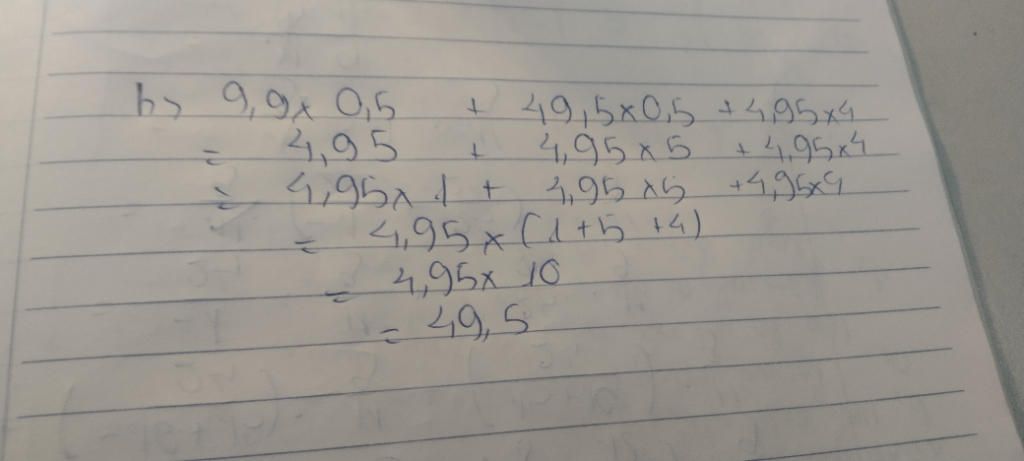 b) 9,9 x 0,5 + 49,5 x 0,5 + 4,95 x 4
= 4,95 + 4,95 x 5 + 4,95 x 4
= 4,95 x 1 + 4,95 x 5 + 4,95 x 4
= 4,95 x (1 + 5 + 4)
= 4,95 x 10
= 49,5